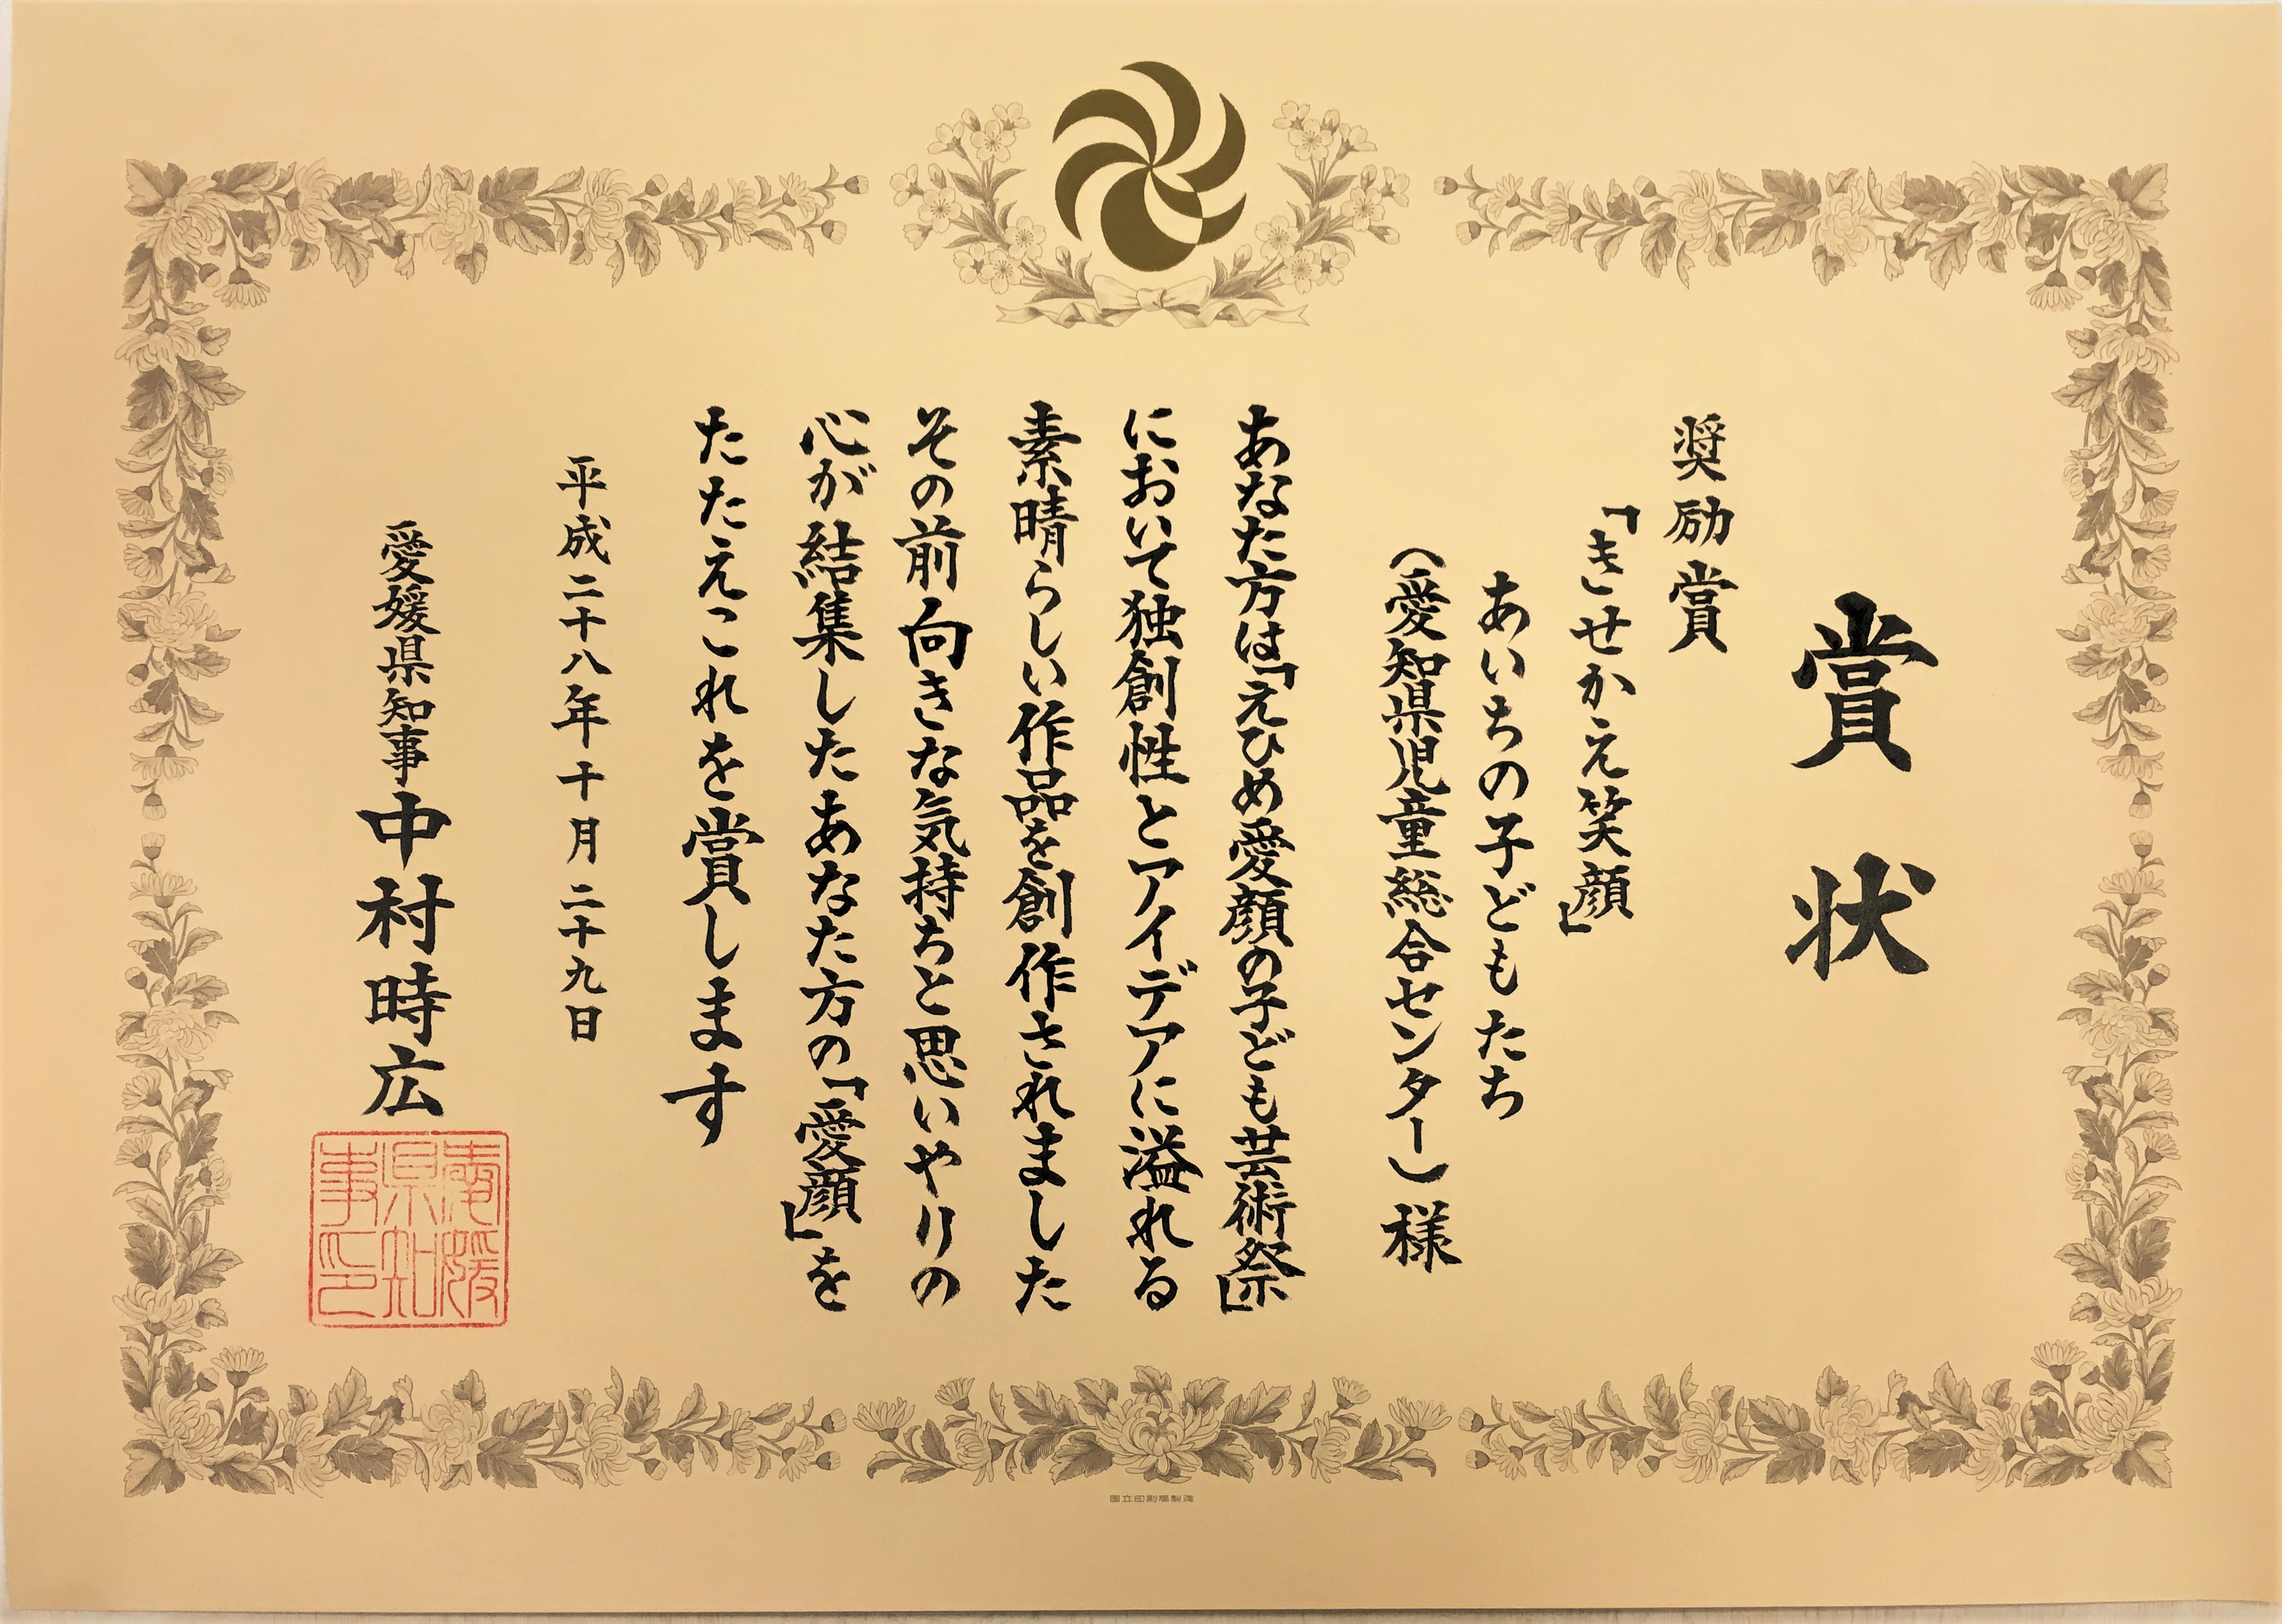 賞状
奨励賞
「きせかえ笑顔」
あいちの子どもたち
(愛知県児童総合センター)様
あなた方は「えひめ愛顔の子ども芸術祭」
において独創性とアイデアに溢れる
素晴らしい作品を創作されました
その前向きな気持ちと思いやりの
心が結集したあなた方の「愛顔」を
たたえこれを賞します
平成二十八年十月二十九日
愛媛県知事中村時広
愛媛
県知
事印
国立印刷局製造